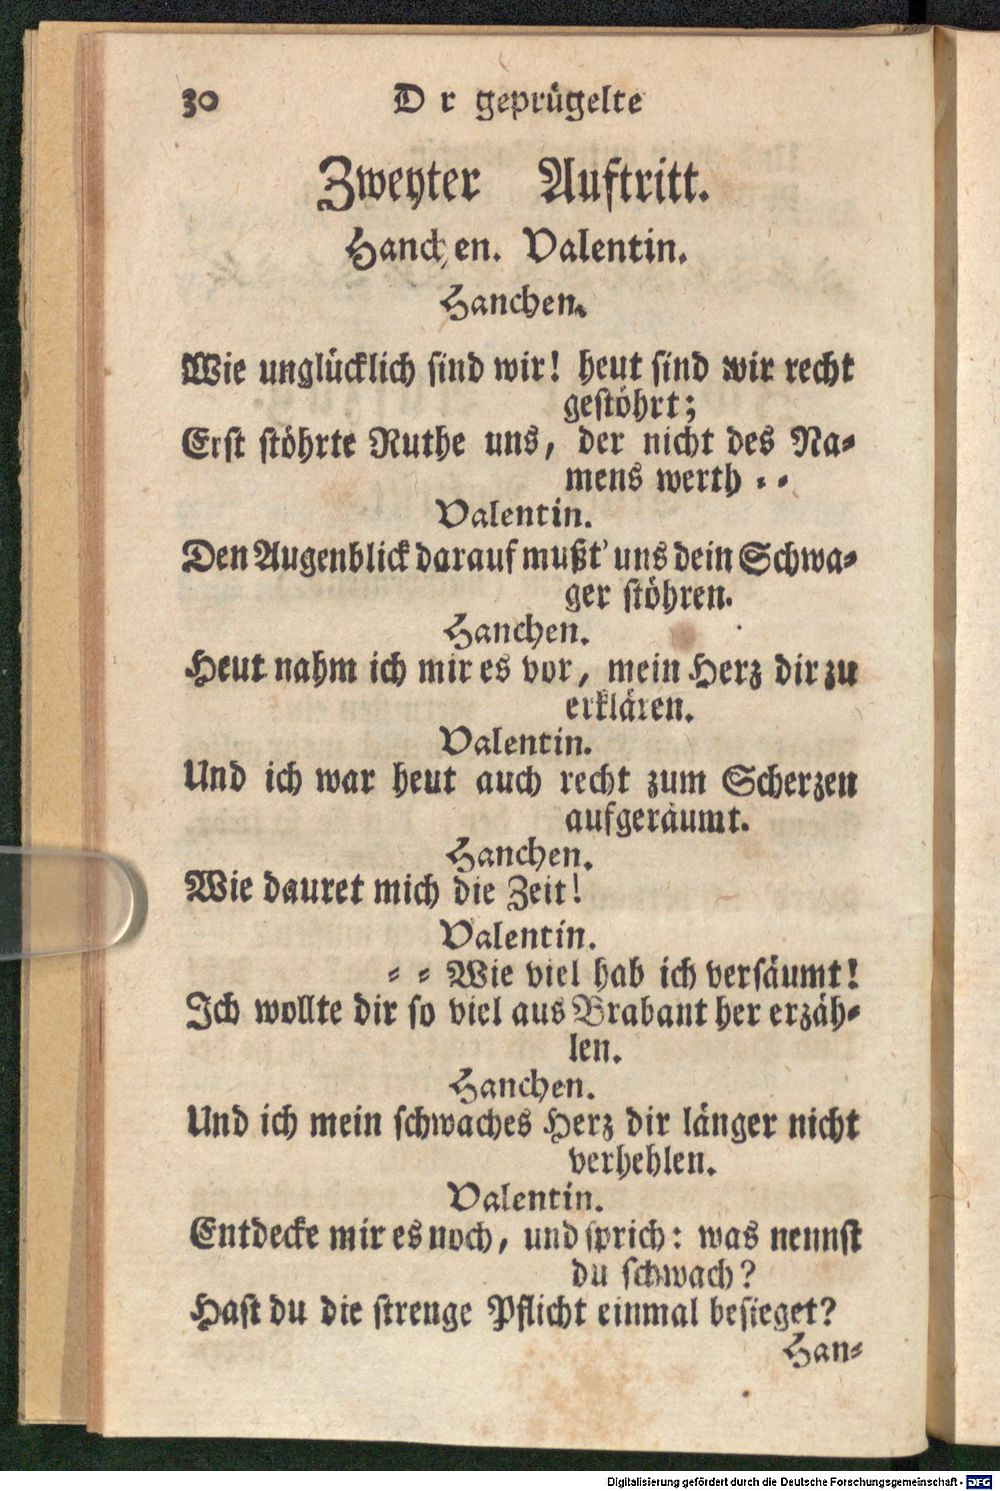 30 D r geprügelte
Zweyter Auftritt.
Hanchen. Valentin.
Hanchen.
Wie unglücklich sind wir! heut sind wir recht
gestöhrt;
Erst stöhrte Ruthe uns, der nicht des Na-
mens werth - -
Valentin.
Den Augenblick darauf mußt' uns dein Schwa-
ger stöhren.
Hanchen.
Heut nahm ich mir es vor, mein Herz dir zu
erklären.
Valentin.
Und ich war heut auch recht zum Scherzen
aufgeräumt.
Hanchen.
Wie dauret mich die Zeit!
Valentin.
- - Wie viel hab ich versäumt!
Ich wollte dir so viel aus Brabant her erzäh-
len.
Hanchen.
Und ich mein schwaches Herz dir länger nicht
verhehlen.
Valentin.
Entdecke mir es noch, und sprich: was nennst
du schwach?
Hast du die strenge Pflicht einmal besieget?
Han-
Digitalisierung gefördert durch die Deutsche Forschungsgemeinschaft - DFG